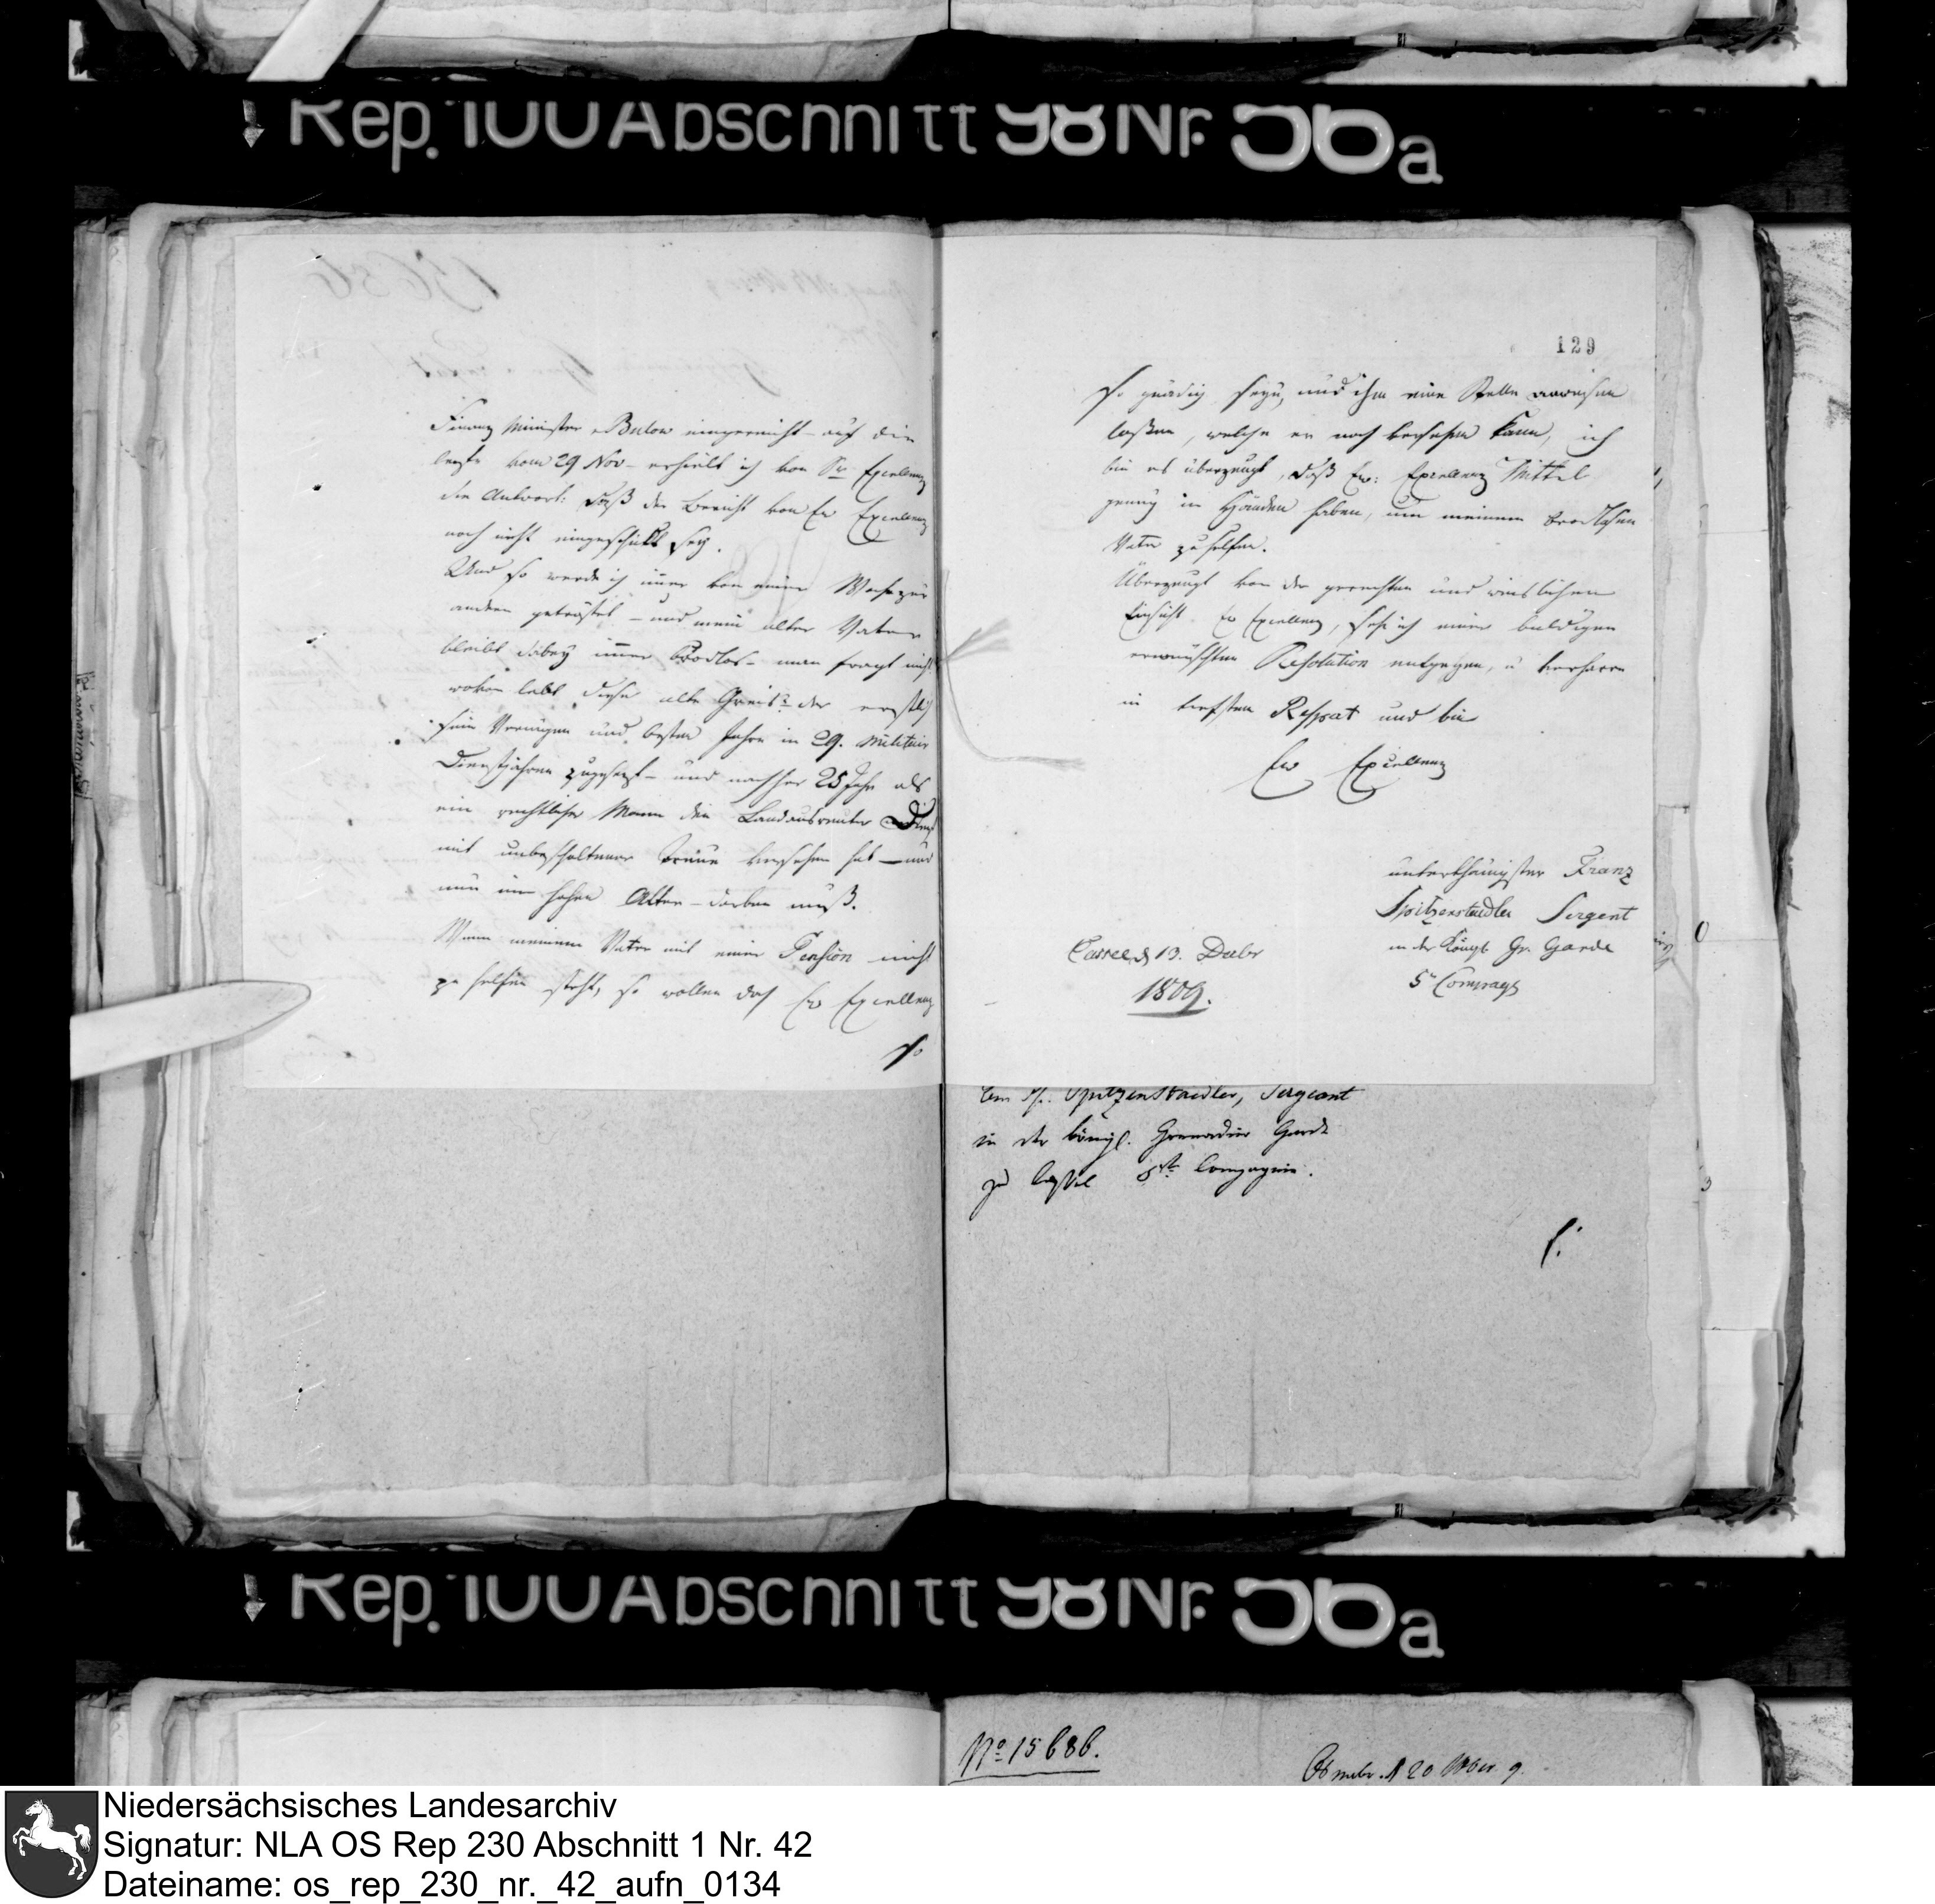 Rep. 100 Abschnitt 98 Nr. 56a
Finanz Minister v Bulow eingereicht – auf die
lezte vom 29 Nov – erhielt ich von Sr Excellenz
die Antwort: daß der Bericht von Ew Excellenz
noch nicht eingeschikt sey.
Und so werde ich imer von einer Woche zur
andern getröstet – und mein alter Vater
bleibt dabey imer Brodlos – man fragt nicht
wovon lebt dieser alte Greis? der erstlich
sein Vermögen und besten Jahre in 29. Militair
Dienstjahren zugesezt – und nachher 25 Jahr als
ein rechtlicher Mann die Landausreuter Dienst
mit unbescholtener Treue versehen hat – und
nun im hohen Alter – darben muß.
Wenn meinem Vater mit einer Pension nicht
zu helfen steht, so wollen doch Ew Excellenz
so
129
so gnädig seyn, und ihm eine Stelle anweisen
laßen, welche er noch versehen kann, ich
bin es überzeugt, daß Ew: Excellenz Mittel
genug in Händen haben, um meinem brodlosen
Vater zu helfen.
Überzeugt von der gerechten und
Einsicht Ew Excellenz, sehe ich einer baldigen
erwünschten Resolution entgegen, u verharre
in tiefsten Respect und bin
Ew Excellenz
unterthänigster Franz
Spitzenstaedler Sergent
in der Königl. Gr. Garde
5n Compagn
Cassel d 13. Decbr
1809.
dem H. Spitzenstaedler, Sergeant
in der königl. Grenadier Garde
zu Cassel 5te Compagnie.
No 15686.
Osnabr. d 20 Xber 9.
Rep. 100 Abschnitt 98 Nr. 56a
Niedersächsisches Landesarchiv
Signatur: NLA OS Rep 230 Abschnitt 1 Nr. 42
Dateiname: os_rep_230_nr._42_aufn_0134